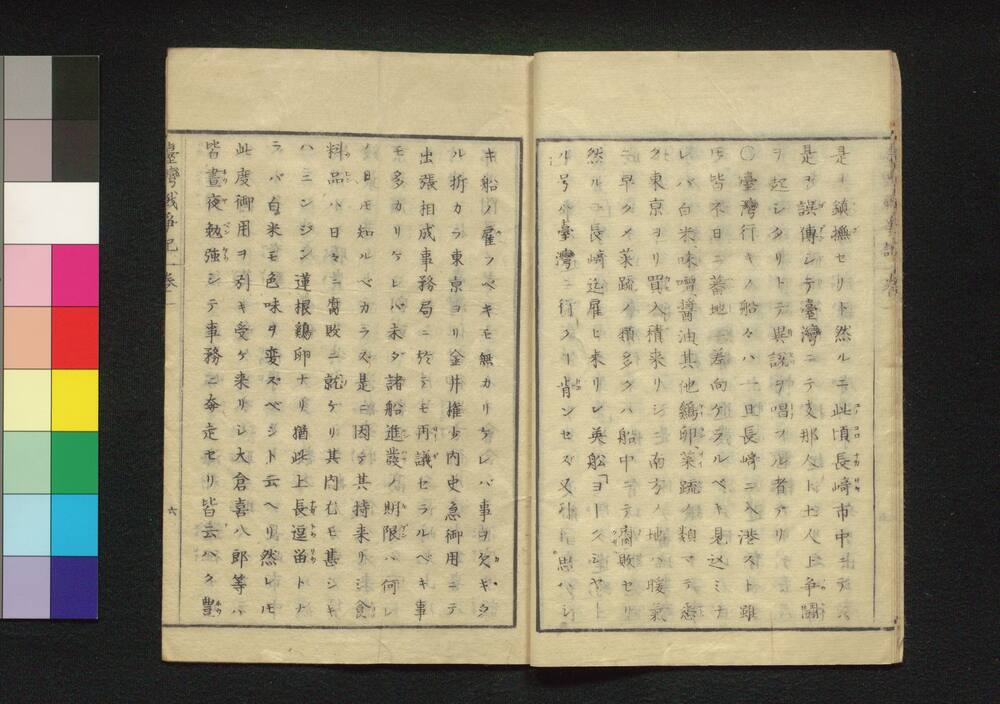 是ヲ鎮撫セリト然ルニ此頃長崎市中ニテ
是ヲ誤傳シテ臺灣ニテ支那人ト土人ト争闘
ヲ起シタリトテ異説ヲ唱フル者アリ
〇臺灣行キノ船々ハ一旦長崎ニヘ港スト雖
𪜈皆不日ニ蕃地ニ差向ケラルベキ見込ミナ
レバ白米味噌醤油其他鶏卵菜蔬ノ類マデ悉
ク東京ヨリ買入積来リシニ南方ノ地ハ暖気
早クメ菜蔬ノ類多クハ船中ニテ腐敗セリ
然ルニ長崎迄雇ヒ来リシ英舩「ヨークシヤー」
号ハ臺灣ニ行クヿ肯ンセズ又外ニ思ハシ
キ船ノ雇フベキモ無カリケレバ事ヲ欠キタ
ル折カラ東京ヨリ金井権少内史急御用ニテ
出張相成事務局ニ於テモ再議セラルベキ事
モ多カリケレバ未ダ諸船進發ノ期限ハ何レ
ノ日𪜈知ルベカラズ是ニ因テ其持来リシ食
料品ハ日々ニ腐敗ニ就ケリ其内尤モ甚シキ
ハニンジン蓮根鶏卵ナリ猶此上長逗留トナ
ラバ白米モ色味ヲ変ズベシト云ヘリ然レ𪜈
此度御用ヲ引キ受ケ来リシ大倉喜八郎等ハ
皆晝夜勉強シテ事務ニ奔走セリ皆云ハク豊
臺灣戦争記 巻二
六